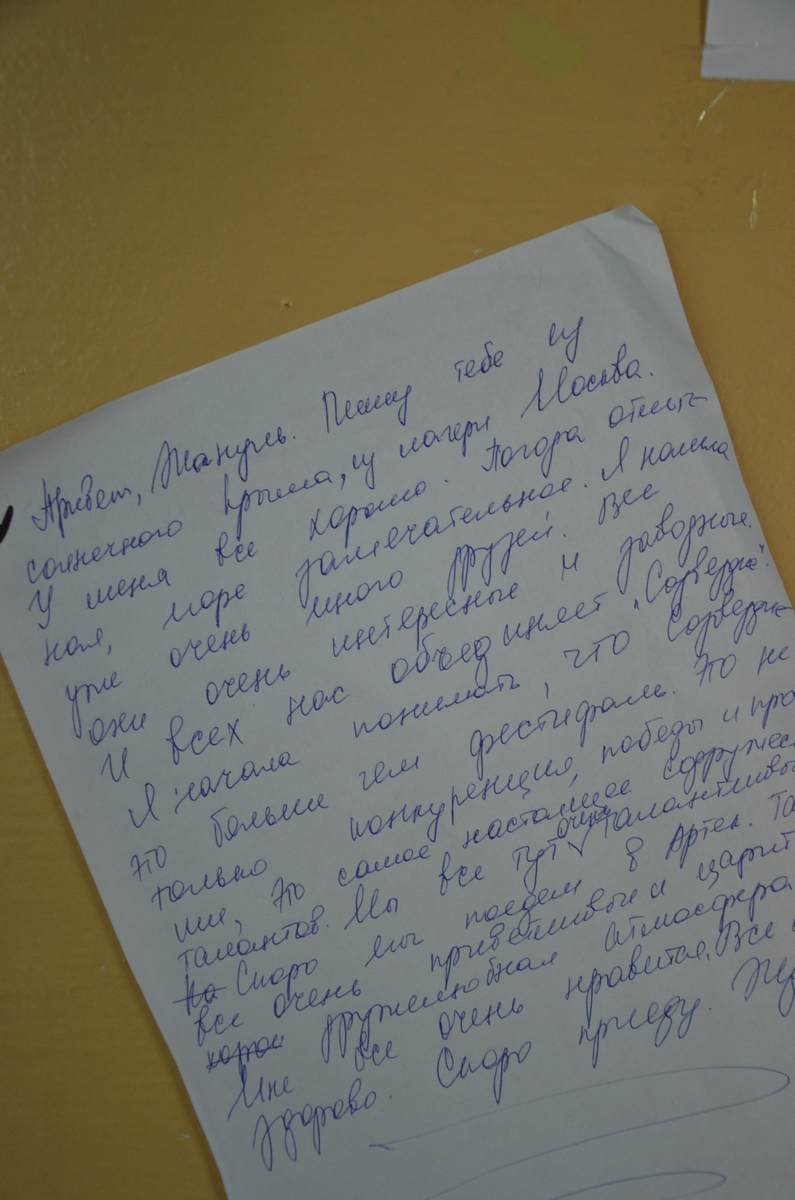 Привет, Мануль. Пишу тебе из
солнечного Крыма, из лагеря Москва.
У меня все хорошо. Погода отлич-
ная, море замечательное. Я нашла
уже очень много друзей. Все
они очень интересные и заводные.
И всех нас объединяет "Созвездие".
Я начала понимать, что Созвездие
это больше чем фестиваль. Это не
только конкуренция, победы и
это самое настоящее содружес
талантов. Мы все тут очень талантливы
На Скоро мы поедем в Артек. Та
все очень приветливые и царит
дружелюбная атмосфера
Мне все очень нравится. Все
здорово. Скоро приеду.